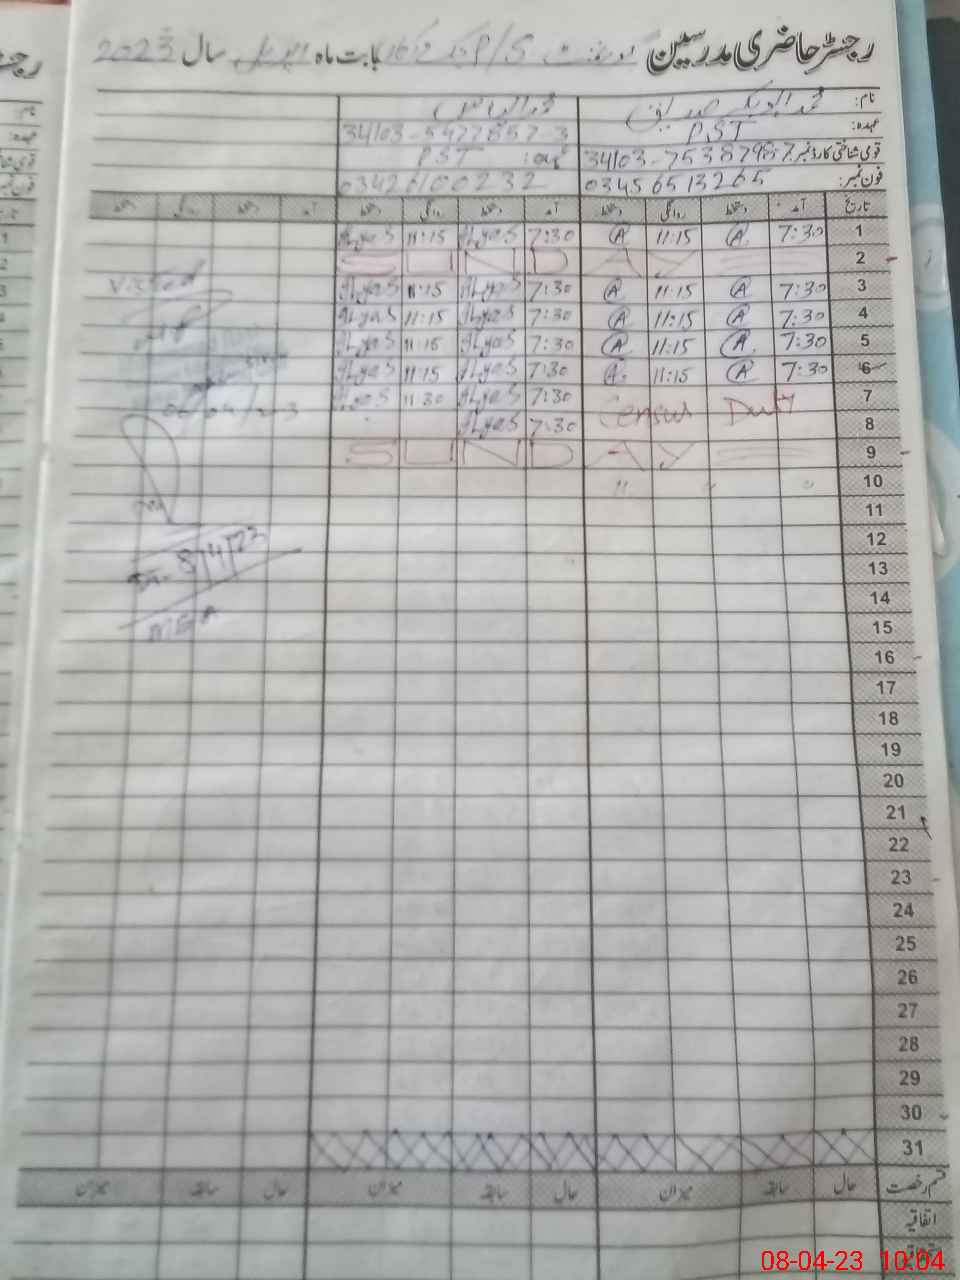 رجسٹر حاضری مدرسین گورنمنٹ P/S چک بابت ماہ اپریل سال 2023
نام: محمد ابوبکر صدیق محمد الیاس
عہدہ: PST 34103-5977857-3
قومی شناختی کارڈ نمبر: عہدہ: PST
فون نمبر: 03456513265 03426100232
تاریخ آمد دستخط روانگی دستخط آمد دستخط روانگی دستخط آمد دستخط روانگی دستخط
1 7:30 A 11:15 A 7:30 ILyaS 11:15 ILyaS
2 SUNDAY
3 7:30 A 11:15 A 7:30 ILyaS 11:15 ILyaS
Visited
4 7:30 A 11:15 A 7:30 ILyaS 11:15 ILyaS
5 7:30 A 11:15 A 7:30 ILyaS 11:15 ILyaS
6 7:30 A 11:15 A 7:30 ILyaS 11:15 ILyaS
7 Census Duty 7:30 ILyaS 11:30 ILyaS
06/04/23
8 7:30 ILyaS
9 SUNDAY
10 " " "
11
12
Dt. 8/4/23
13
14
MEA
15
16
17
18
19
20
21
22
23
24
25
26
27
28
29
30
31
قسم رخصت حال سابقہ میزان حال سابقہ میزان حال سابقہ میزان
اتفاقیہ
08-04-23 10:04